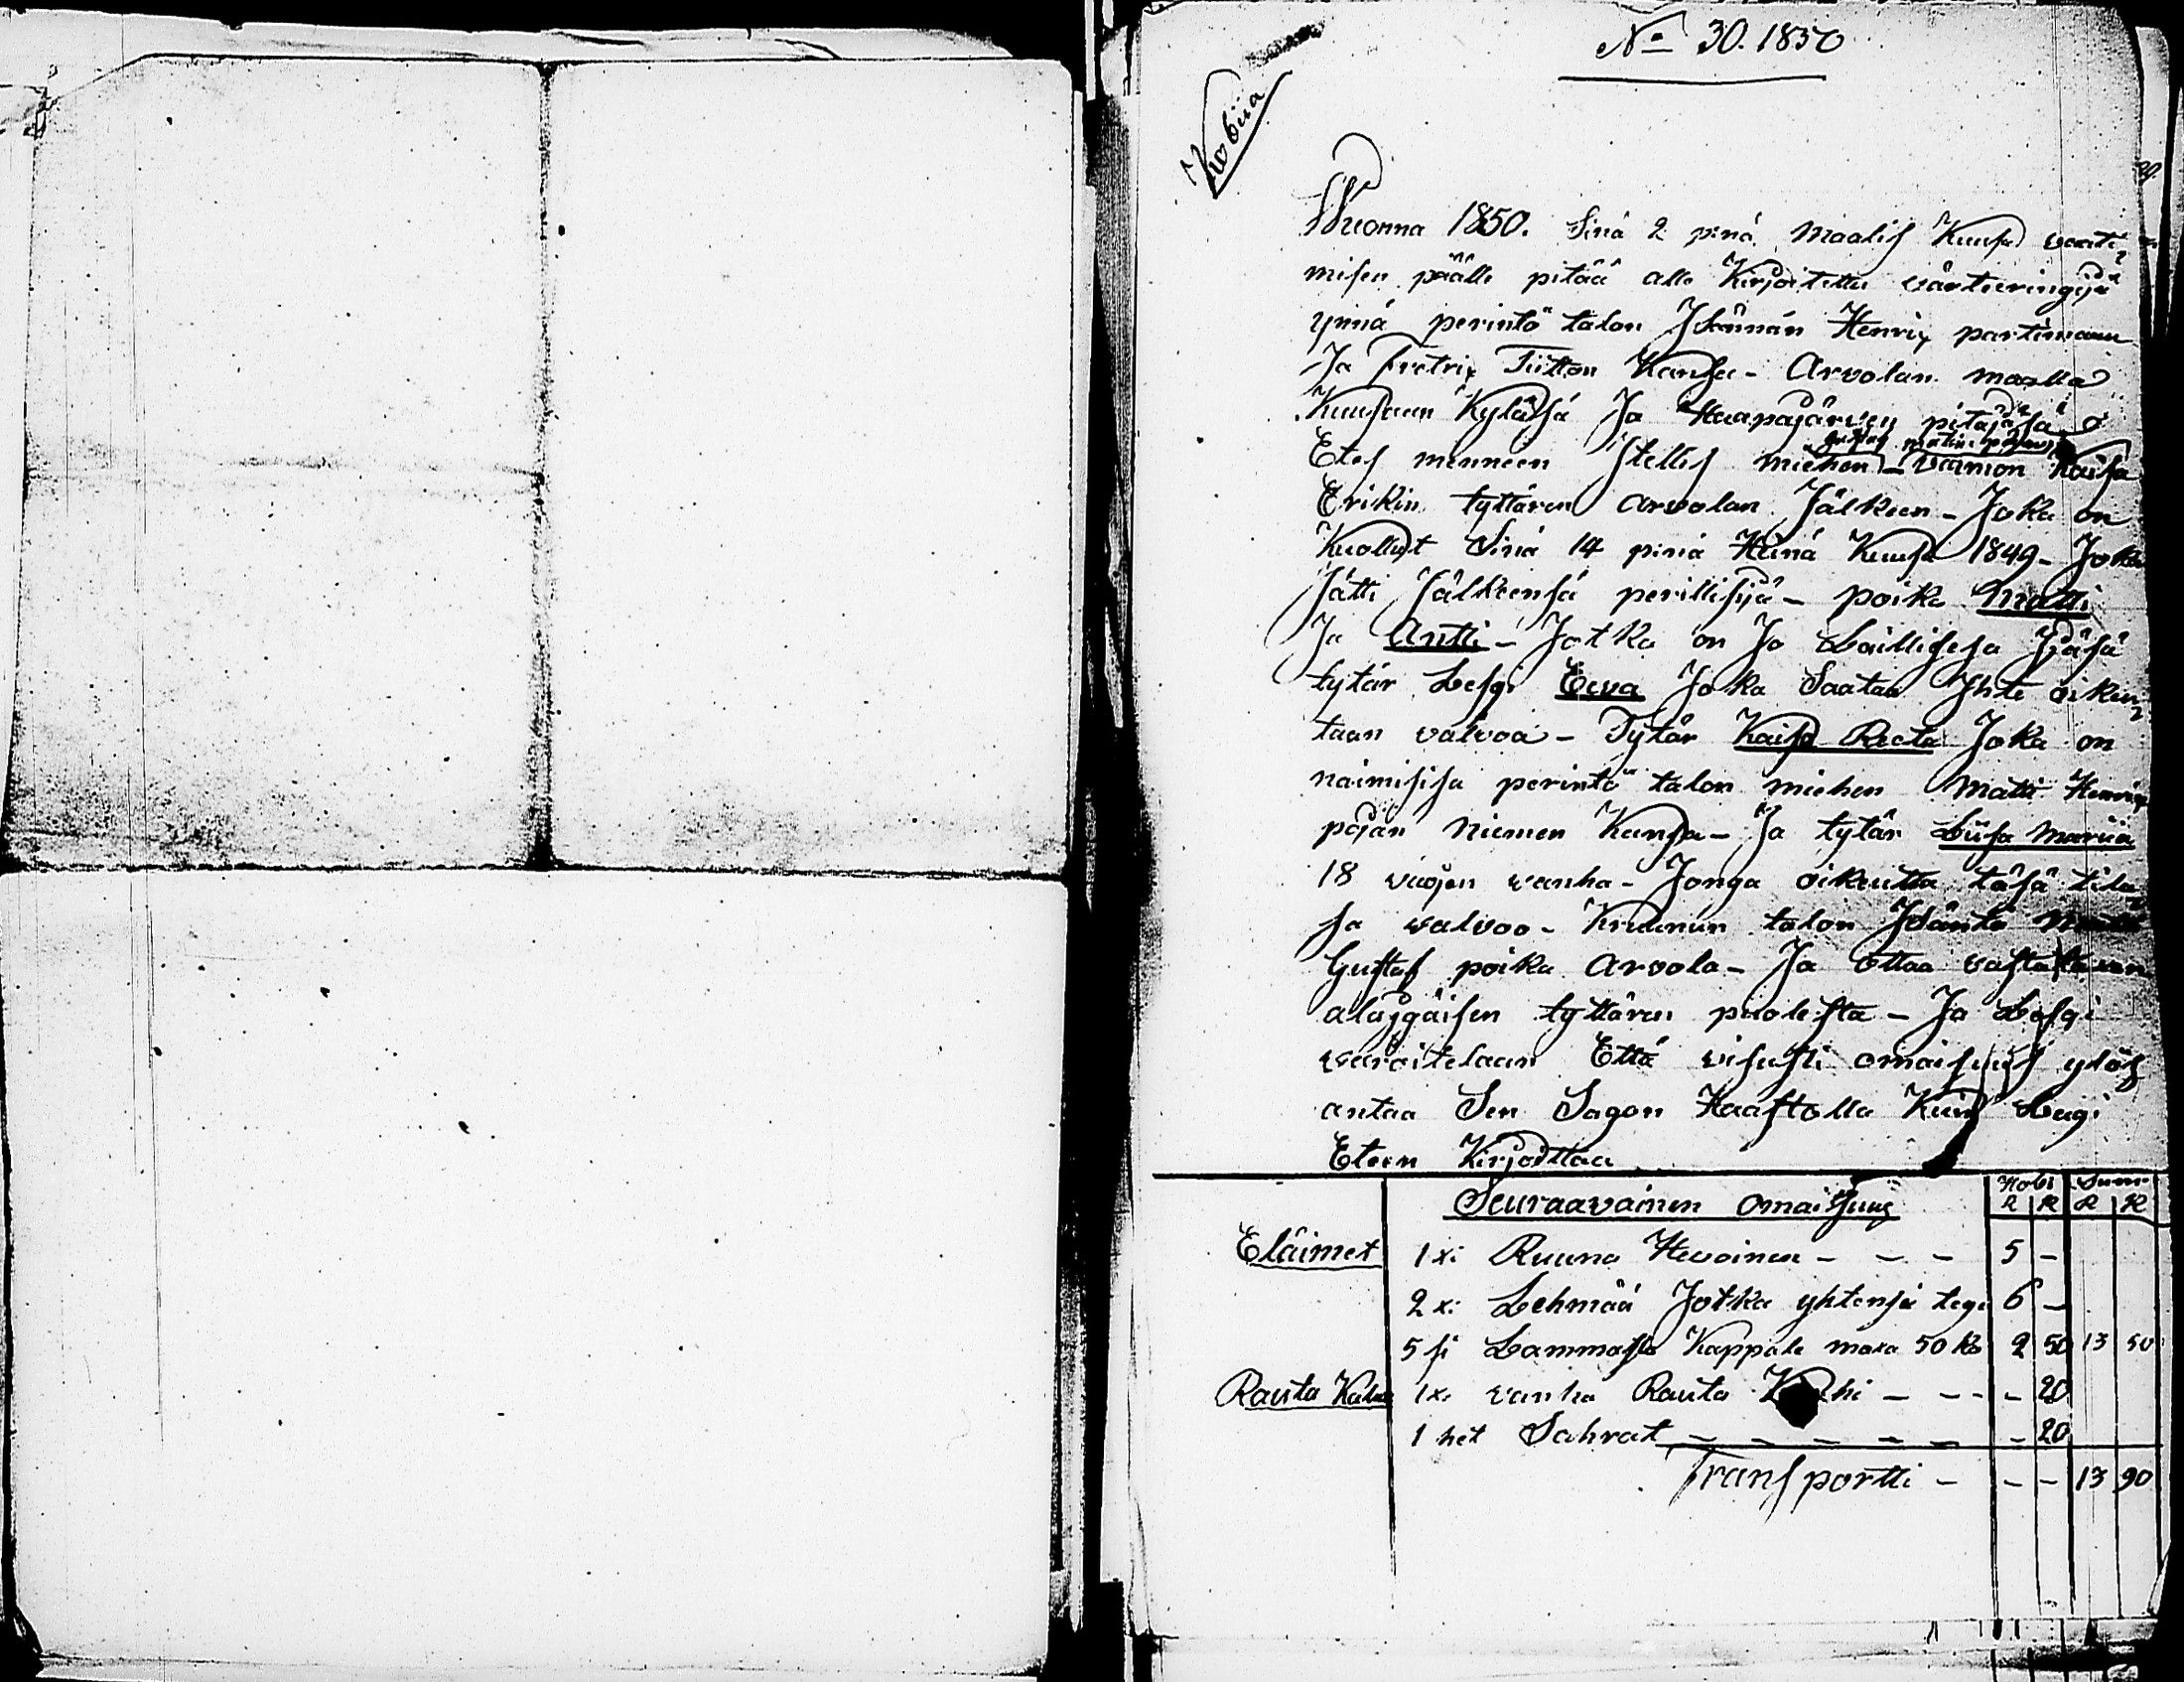 No 30. 1850
Kobia
Wuonna 1850. Sinä 2 p:nä Maalis Kuusa vaati
misen päälle pitää alle Kirjoitettu värteeringijä
ynnä perintö talon Isännän Henrix partimaan
Ja fretrix Tiitton Kansa - Arvolan maalla
Kuusaan Kyläsä Ja Haapajärven pitäjäsä
Etes menneen Itellis miehen - vaimon Kaisa
Gustav matin pojan
Erikin tyttären Arvolan Jälkeen - Joka on
Kuollut Sinä 14 p:nä Heinä Kuusa 1849 - Joka
Jätti Jälkeensä perillisijä - poika Matti
Ja Antti - Jotka on Jo Laillisesa Ijäsä
tytär Lesqi Eeva Joka Saataa Ihte oikeu
taan valvoa - Tytär Kaisa Reeta Joka on
naimisisa perintö talon miehen Matti Henrix
pojan Niemen Kansa - Ja tytär Liisa Mariia
18 vuojen vanha - Jonga oikeutta täsä tila
sa valvoo - Kruunun talon Isäntä
Gustaf poika Arvola - Ja ottaa vasta
alaijgäisen tyttären puolesta - Ja Lesqi
varoitelaan Että visusti omaisuus ylös
antaa Sen Sagon Haastolla Kuin Lagi
Eteen Kirjoittaa
Seuraavainen omaisuus
Kobi Sum
R K R K
Eläimet 1 xi Ruuna Hevoinen - - - 5 -
2 xi Lehmää Jotka yhtensä tege 6 -
5 si Lammasta Kappale maxa 50 ko 2 50 13 50
Rauta Kalu 1 xi vanha Rauta - - - - 20
1 het Sahrat - - - - - - 20
Transportti - - - 13 90